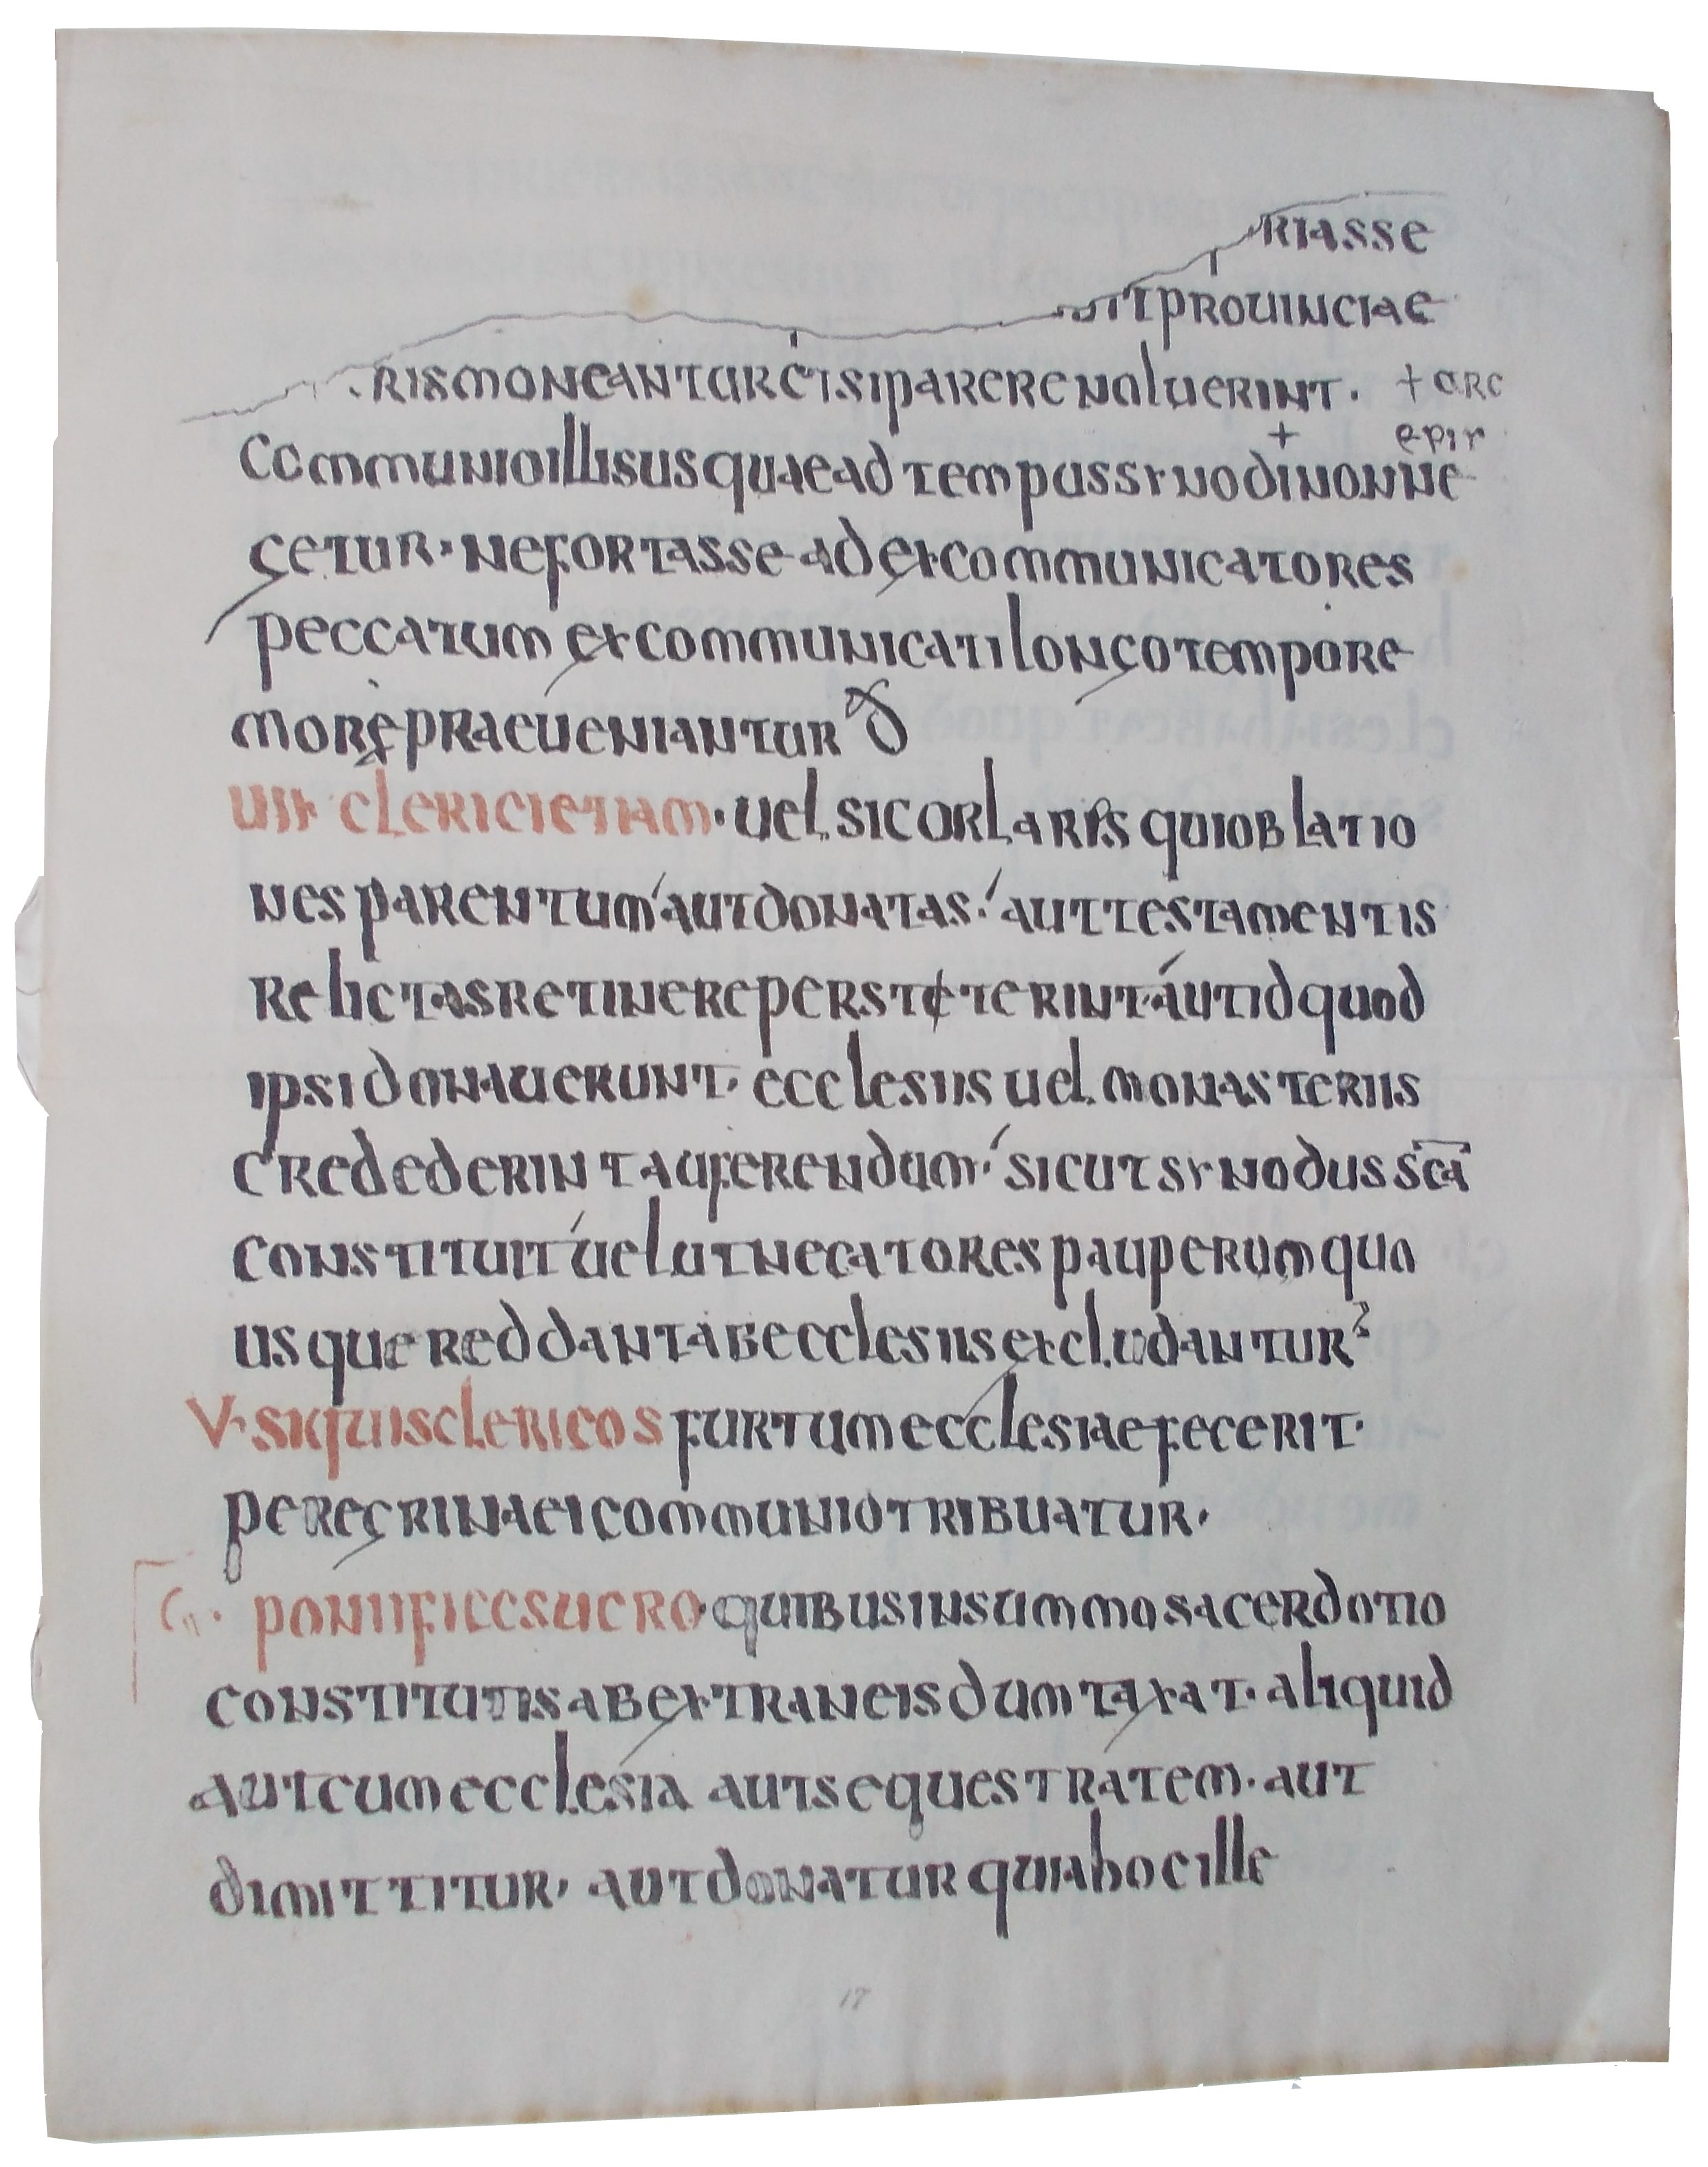 RIASSE
TIPROUINCIAE
RISMONEANTURETSIPARERENOLUERINT· + ARC
COMMUNIOILLISUSQUAEADTEMPUSSYNODINONNE + EPIR
GETUR· NEFORTASSE AD EXCOMMUNICATORES
PECCATUM EXCOMMUNICATILONGOTEMPORE
MORSPRAEUENIANTUR
UII· CLERICIETIAM· UEL SICORLARIS QUIOBLATIO
NES PARENTUM AUTDONATAS· AUTTESTAMENTIS
RELICTASRETINEREPERSTETERINT AUTIDQUOD
IPSIDONAUERUNT· ECCLESIIS UEL MONASTERIIS
CREDEDERINTAUFERENDUM· SICUTSYNODUSSCA
CONSTITUIT UELUTNECATORESPAUPERUMQUO
USQUEREDDANTABECCLESIISEXCLUDANTUR
V· SIQUISCLERICOS FURTUMECCLESIAEFECERIT·
PEREGRINAEICOMMUNIOTRIBUATUR·
PONTIFICESUERO· QUIBUSINSUMMOSACERDOTIO
CONSTITUTISABEXTRANEISDUMTAXAT· ALIQUID
AUTCUMECCLESIA AUTSEQUESTRATEM· AUT
DIMITTITUR· AUTDONATURQUIAHOCILLE
17